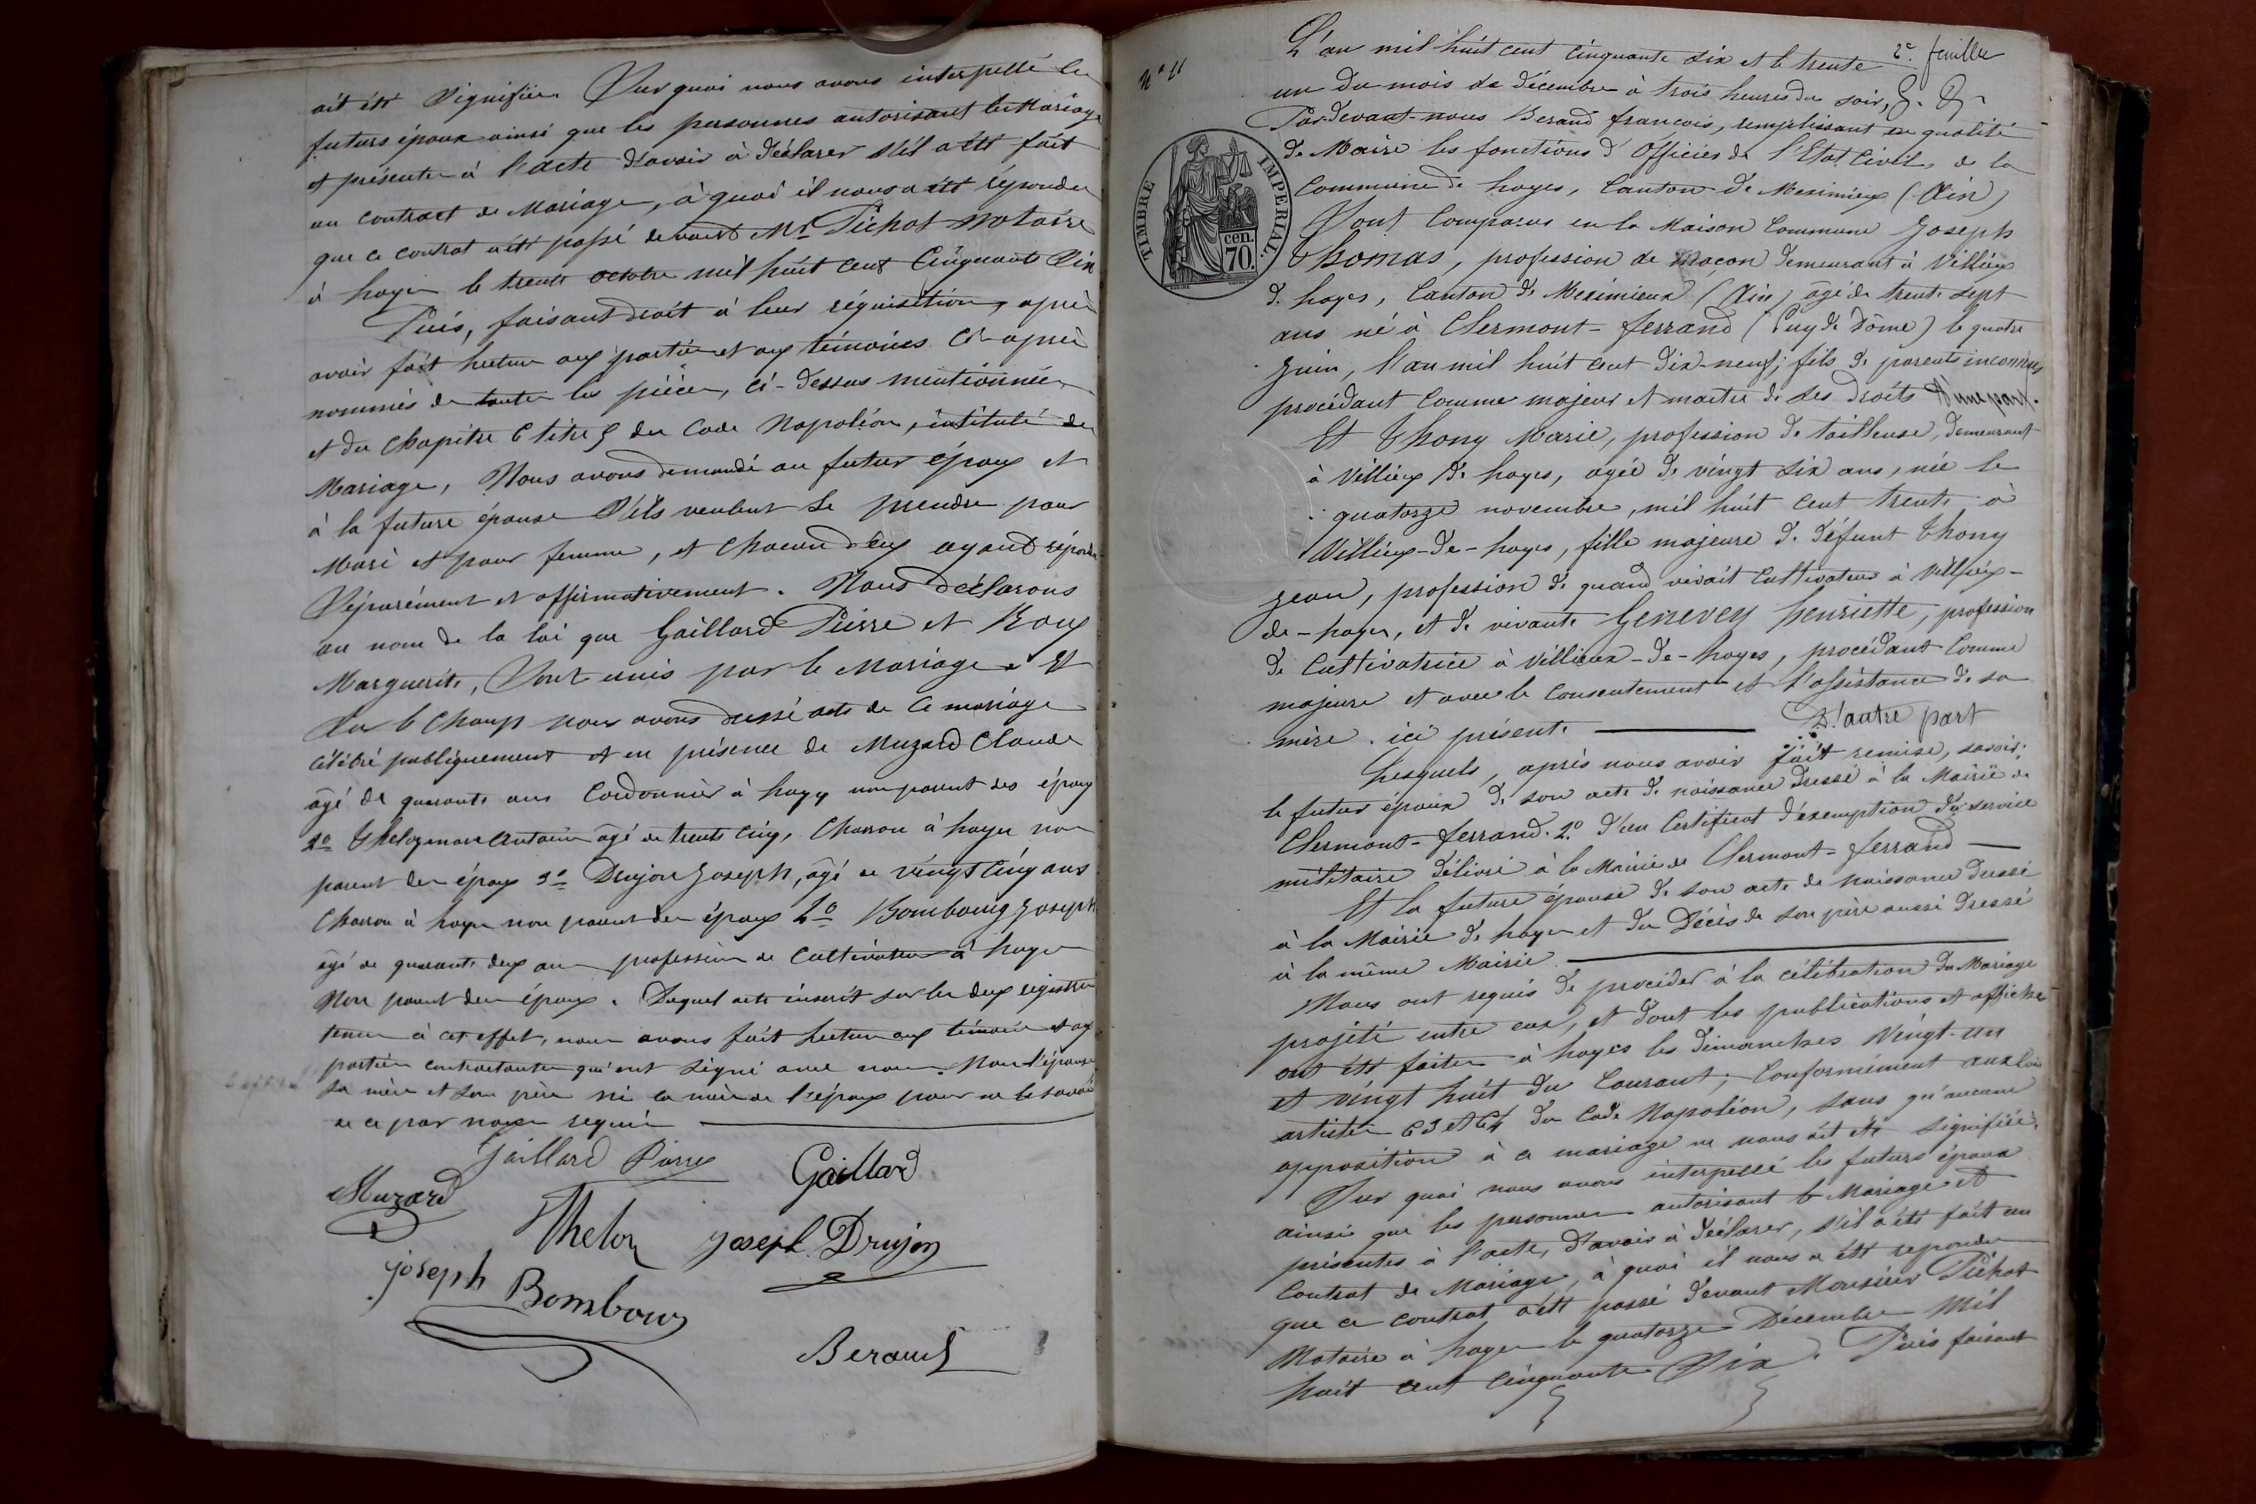 ait été signifiée. Sur quoi nous avons interpellé les
futurs époux ainsi que les personnes autorisant le Mariage
et présentes à l'acte d'avoir à déclarer s'il a été fait
un contract de Mariage, à quoi il nous a été répondu
que ce contrat a été passé devant Mr Pichat Notaire
à loyes le trente octobre mil huit cent cinquante Six
Puis, faisant droit à leur réquisition, après
avoir fait lecture aux parties et aux témoins ci-après
nommés de toutes les pièces, ci-dessus mentionnées
et du chapitre 6 titre 5 du Code Napoléon, intitulé du
Mariage, Nous avons demandé au futur époux et
à la future épouse s'ils veulent se prendre pour
Mari et pour femme, et chacun d'eux ayant répondu
Séparément et affirmativement. Nous déclarons
au nom de la loi que Gaillard Pierre et Roux
Marguerite, Sont unis par le Mariage. Et
Sur le champ nous avons dressé acte de ce mariage
célébré publiquement et en présence de Muzard Claude
âgé de quarante ans Cordonnier à loyes non parent des époux
2o Antoine âgé de trente cinq, Charron à loyes non
parent des époux 3o Drujon Joseph, âgé de vingt cinq ans
Charron à loyes non parent des époux 4o Bombourg Joseph
âgé de quarante deux ans profession de Cultivateur à loyes
Non parent des époux. Duquel acte inscrit sur les deux registres
tenus à cet effet, nous avons fait lecture aux témoins et aux
parties contractantes qui ont signé avec nous. Non l'épouse
sa mère et son père ni la mère de l'époux pour ne le savoir
de ce par nous requis
Gaillard Pierre
Gaillard
Muzard
Theloz
Joseph Drujon
Joseph
Bombour
Beraud
2e feuille
No 11
L'an mil huit cent cinquante six et le trente
un du mois de décembre à trois heures du soir,
Par-devant-nous Beraud françois, remplissant en qualité
de Maire les fonctions d'Officier de l'Etat Civil, de la
Commune de loyes, Canton de Meximieux (Ain)
Sont Comparus en la Maison Commune Joseph
Thomas, profession de Maçon demeurant à Villieux
de loyes, Canton de Meximieux (Ain) âgé de trente sept
ans né à Clermont-ferrand (Puy de Dôme) le quatre
Juin, l'an mil huit cent dix-neuf; fils de parents inconnus
procédant comme majeur et maitre de ses droits D'une part.
TIMBRE IMPERIAL.
cen.
70.
Et Thony Marie, profession de tailleuse, demeurant
à Villieux de loyes, agée de vingt six ans, née le
quatorze novembre, mil huit cent trente à
Villieux-de-loyes, fille majeure de défunt Thony
Jean, profession de quand vivait Cultivateur à Villieux-
de-loyes, et de vivante Genevey henriette, profession
de Cultivatrice à Villieux-de-loyes, procédant Comme
majeure et avec le consentement et l'assistance de sa
mère ici présente D'autre part
Lesquels, après nous avoir fait remise, savoir:
le futur époux de son acte de naissance dressé à la Mairie de
Clermont-ferrand. 2o d'un Certificat d'exemption du service
militaire délivré à la Mairie de Clermont-ferrand
Et la future épouse de son acte de naissance dressé
à la Mairie de loyes et du Décès de son père aussi dressé
à la même Mairie.
Nous ont requis de procéder à la célébration du Mariage
projeté entre eux, et dont les publications et affiches
ont été faites à loyes les dimanches vingt-un
et vingt huit du Courant, conformément aux lois
articles 63 et 64 du Code Napoléon, sans qu'aucune
opposition à ce mariage ne nous ait été signifiée,
Sur quoi nous avons interpellé les futurs époux
ainsi que les personnes autorisant le Mariage et
présentes à l'acte, d'avoir à déclarer, s'il a été fait un
Contrat de Mariage, à quoi il nous a été répondu
que ce contrat a été passé devant Monsieur Pichat
Notaire à loyes le quatorze Décembre Mil
huit cent cinquante Six. Puis faisant